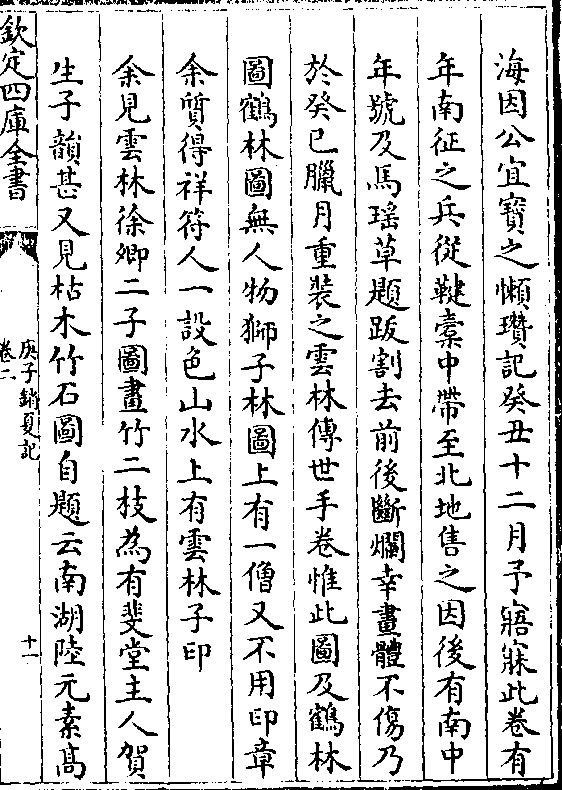 海因公宜寶之懶瓚記癸丑十二月予寤寐此卷有
年南征之兵從鞬櫜中帶至北地售之因後有南中
年號及馬瑶草題跋割去前後斷爛幸畫體不傷乃
於癸巳臘月重裝之雲林傳世手卷惟此圖及鶴林
圖鶴林圖無人物獅子林圖上有一僧又不用印章
余質得祥符人一設色山水上有雲林子印
余見雲林徐卿二子圖畫竹二枝為有斐堂主人賀
生子韻甚又見枯木竹石圖自題云南湖陸元素髙
欽定四庫全書
庚子銷夏記
卷二
十一